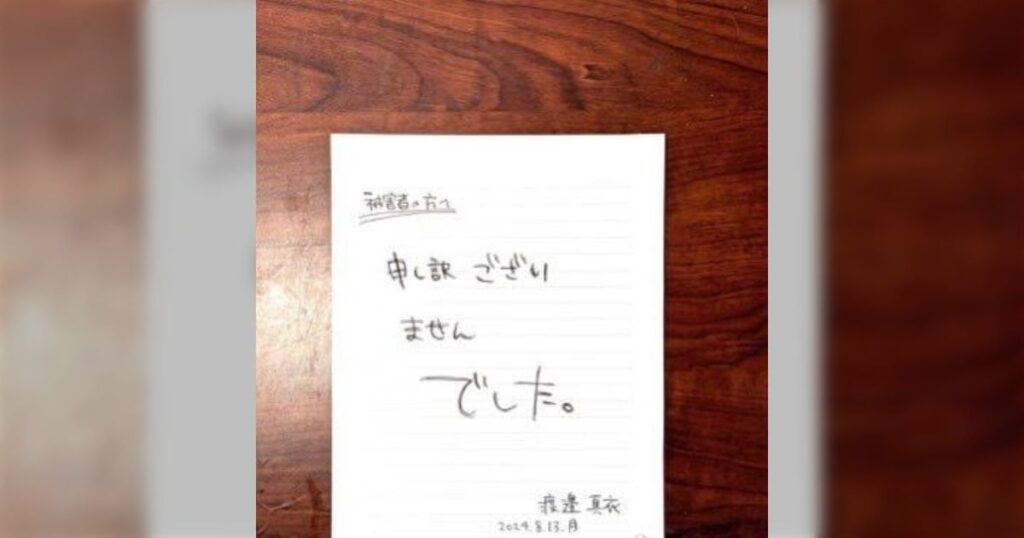 被害者の方へ
申し訳 ござい
ません
でした。
渡邊 真衣
2024.5.13.月